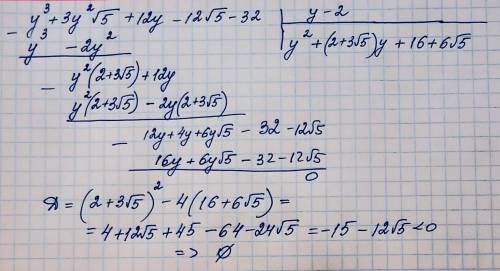 - y³ + 3y²√5 + 12y - 12√5 - 32 | y - 2
y³ - 2y² | y² + (2+3√5)y + 16 + 6√5
- y²(2+3√5) + 12y
y²(2+3√5) - 2y(2+3√5)
- 12y + 4y + 6y√5 - 32 - 12√5
16y + 6y√5 - 32 - 12√5
0
Д = (2+3√5)² - 4(16+6√5) =
= 4 + 12√5 + 45 - 64 - 24√5 = -15 - 12√5 < 0
=> ∅